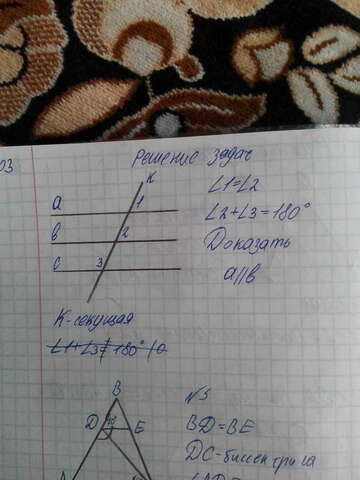 03
Решение задач
K
a
1
∠1=∠2
b
2
∠2+∠3=180°
c
3
Доказать
a||b
K-секущая
∠1+∠3=180°
№3
B
D
E
BD=BE
DC-биссектриса